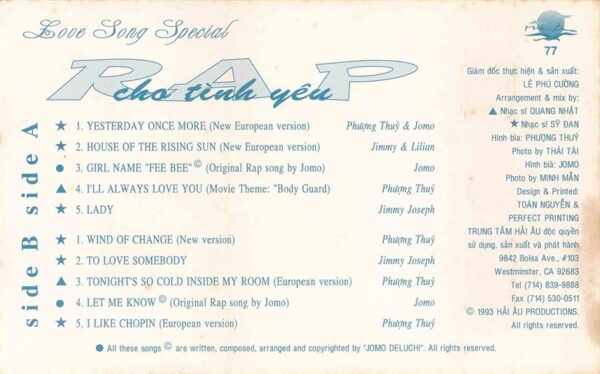 Love Song Special
RAP
cho tình yêu
side A
★ 1. YESTERDAY ONCE MORE (New European version) Phượng Thuý & Jomo
★ 2. HOUSE OF THE RISING SUN (New European version) Jimmy & Lilian
● 3. GIRL NAME "FEE BEE" © (Original Rap song by Jomo) Jomo
▲ 4. I'LL ALWAYS LOVE YOU (Movie Theme: "Body Guard) Phượng Thuý
★ 5. LADY Jimmy Joseph
side B
★ 1. WIND OF CHANGE (New version) Phượng Thuý
★ 2. TO LOVE SOMEBODY Jimmy Joseph
▲ 3. TONIGHT'S SO COLD INSIDE MY ROOM (European version) Phượng Thuý
● 4. LET ME KNOW © (Original Rap song by Jomo) Jomo
★ 5. I LIKE CHOPIN (European version) Phượng Thuý
● All these songs © are written, composed, arranged and copyrighted by "JOMO DELUCHI". All rights reserved.
Hải Âu
77
Giám đốc thực hiện & sản xuất:
LÊ PHÚ CƯỜNG
Arrangement & mix by:
▲ Nhạc sĩ QUANG NHẬT
★ Nhạc sĩ SỸ ĐAN
Hình bìa: PHƯỢNG THUÝ
Photo by THÁI TÀI
Hình bìà: JOMO
Photo by MINH MẪN
Design & Printed:
TOÁN NGUYỄN &
PERFECT PRINTING
TRUNG TÂM HẢI ÂU độc quyền
sử dụng, sản xuất và phát hành
9842 Bolsa Ave., #103
Westminster, CA 92683
Tel (714) 839-9888
Fax (714) 530-0511
© 1993 HẢI ÂU PRODUCTIONS.
All rights reserved.